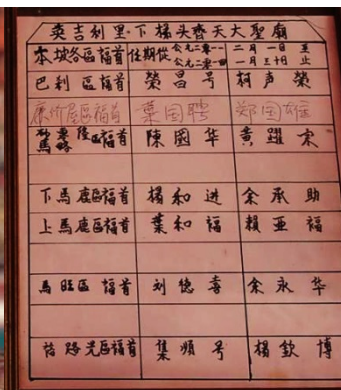 奕吉利里·下梯头齐天大聖廟
本坡各區福首 任期從 公元二零一一 二月一日 至
公元二零一四 一月三十日 止
巴利區福首 榮昌号 柯声榮
葉国聘 郑国雄
區福首 陳國华 黄躍宗
下馬鹿區福首 楊和进 余承助
上馬鹿區福首 葉和福 賴亚福
馬旺區福首 刘德喜 余永华
路光區福首 集順号 楊欽博